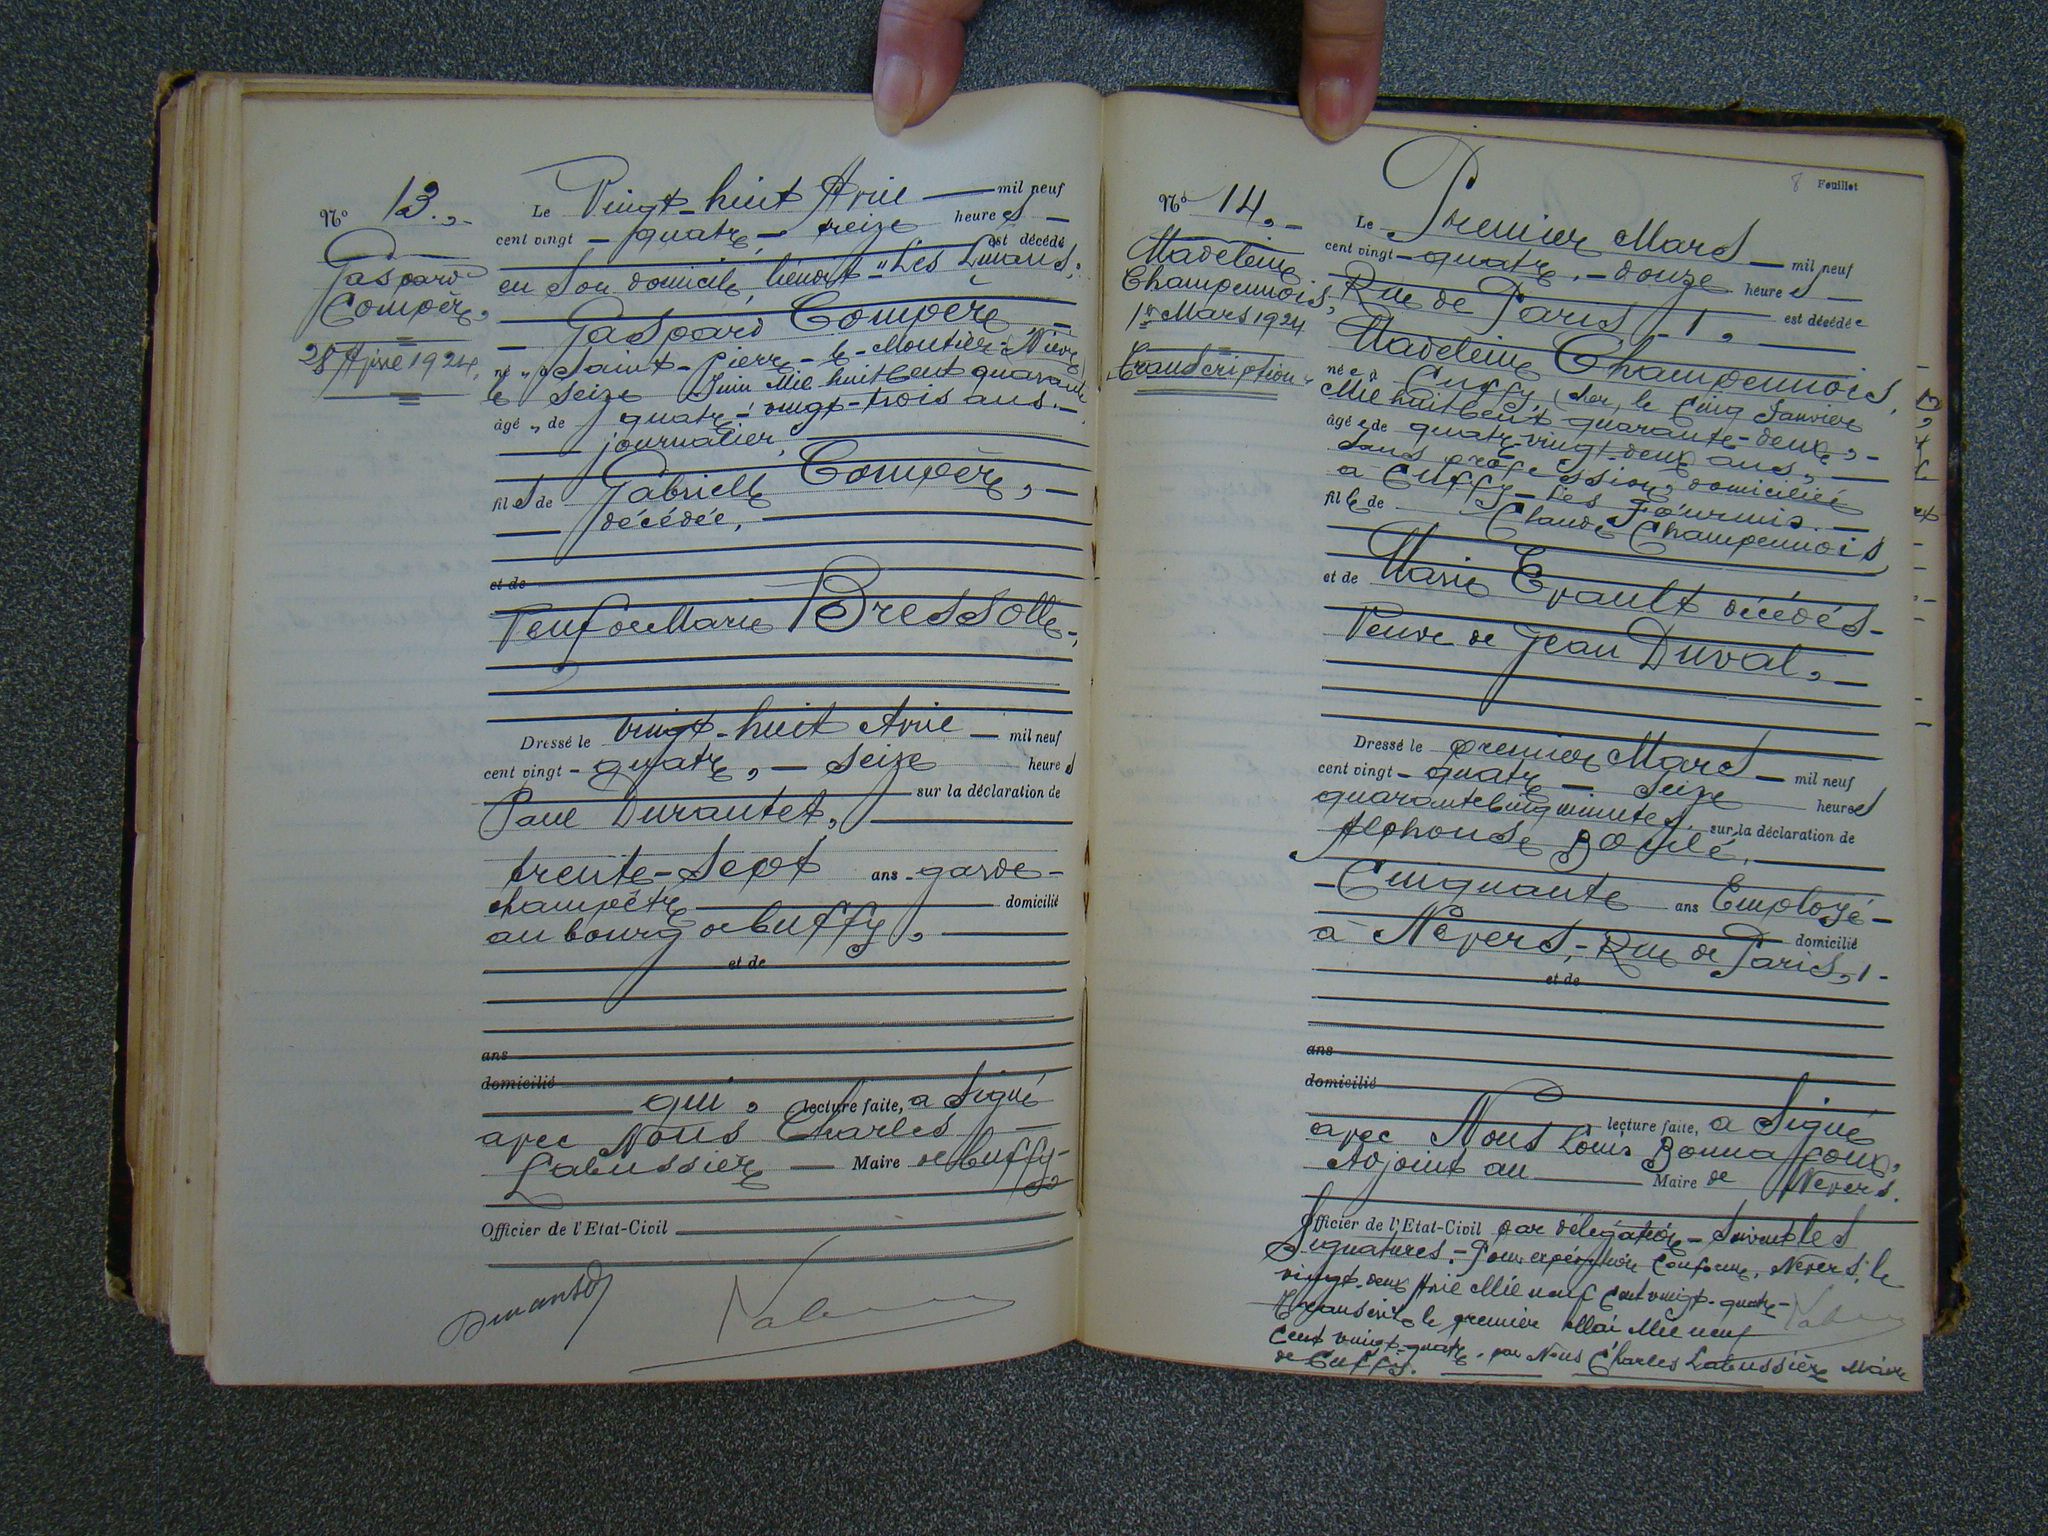 N° 13.,-
Gaspard
Compère,
28 Avril 1924.
Le Vingt-huit Avril — mil neuf
cent vingt - quatre, - treize heures —
est décédé
en son domicile, lieudit "Les Limarus,"
— Gaspard Compère —
né à Saint-Pierre-le-Moutier (Nièvre)
le seize Juin Mil huit Cent quarante
âgé de quatre-vingt-trois ans.—
journalier,
fils de Gabrielle Compère, —
décédée,
et de
Veuf de Marie Bressolle-,
Dressé le vingt-huit Avril — mil neuf
cent vingt - quatre, — seize heures
sur la déclaration de
Paul Durantet,
trente-sept ans - garde-
champêtre domicilié
au bourg de Cuffy,
et de
ans
domicilié
qui, lecture faite, a signé
avec Nous Charles —
Labussière — Maire de Cuffy-
Officier de l'Etat-Civil
8 Feuillet
N° 14,-
Madeleine
Champennois,
1er Mars 1924
"Transcription"
Le Premier Mars — mil neuf
cent vingt - quatre, - douze heures —
Rue de Paris, 1, est décédée
Madeleine Champennois,
née à Cuffy (Cher) le Cinq Janvier
Mil huit Cent quarante-deux, -
âgée de quatre-vingt-deux ans, -
sans profession, domiciliée
à Cuffy - Les Fourmis. —
fille de Claude Champennois
et de Marie Erault décédés -
Veuve de Jean Duval, -
Dressé le premier Mars — mil neuf
cent vingt - quatre — Seize heures
quarante Cinq minutes, sur la déclaration de
Alphonse Boulé,
- Cinquante ans Employé -
domicilié
à Nevers, - Rue de Paris, 1 -
et de
ans
domicilié
lecture faite, a signé
avec Nous Louis Bonnafoux,
Adjoint au Maire de Nevers.
Officier de l'Etat-Civil par délégation - Suivent les
Signatures. - Pour expédition Conforme, Nevers, le
vingt-deux Avril Mil neuf Cent vingt-quatre -
Transcrit le premier Mai Mil neuf
Cent vingt-quatre, par Nous Charles Labussière Maire
de Cuffy.